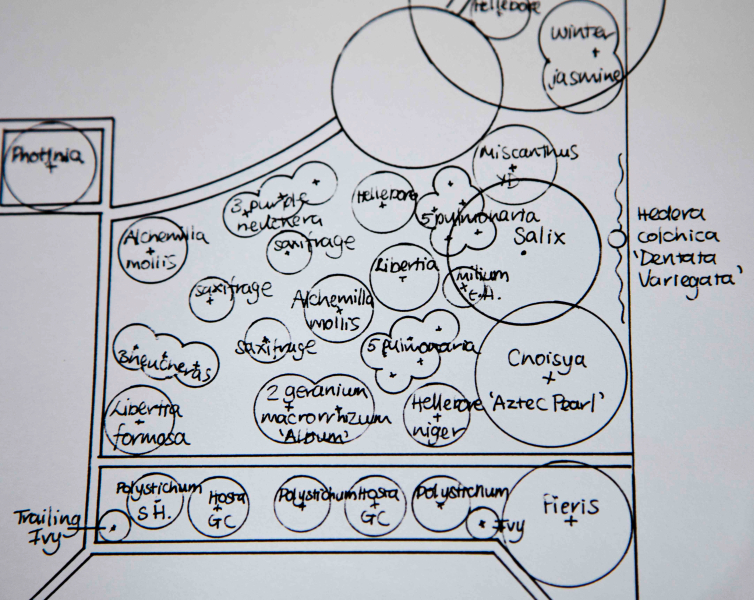 Hellebore
Winter
jasmine
Photinia
Miscanthus
3 purple
heuchera
Hellebore
5 pulmonaria
Salix
Hedera
colchica
'Dentata
Variegata'
Alchemilla
mollis
saxifrage
Libertia
Milium
E.A.
saxifrage
Alchemilla
mollis
3 heucheras
saxifrage
5 pulmonaria
Choisya
'Aztec Pearl'
Libertia
formosa
2 geranium
macorrhizum
'Album'
Hellebore
niger
Polystichum
S H.
Hosta
GC
Polystichum
Hosta
GC
Polystichum
Pieris
Trailing
Ivy
Ivy